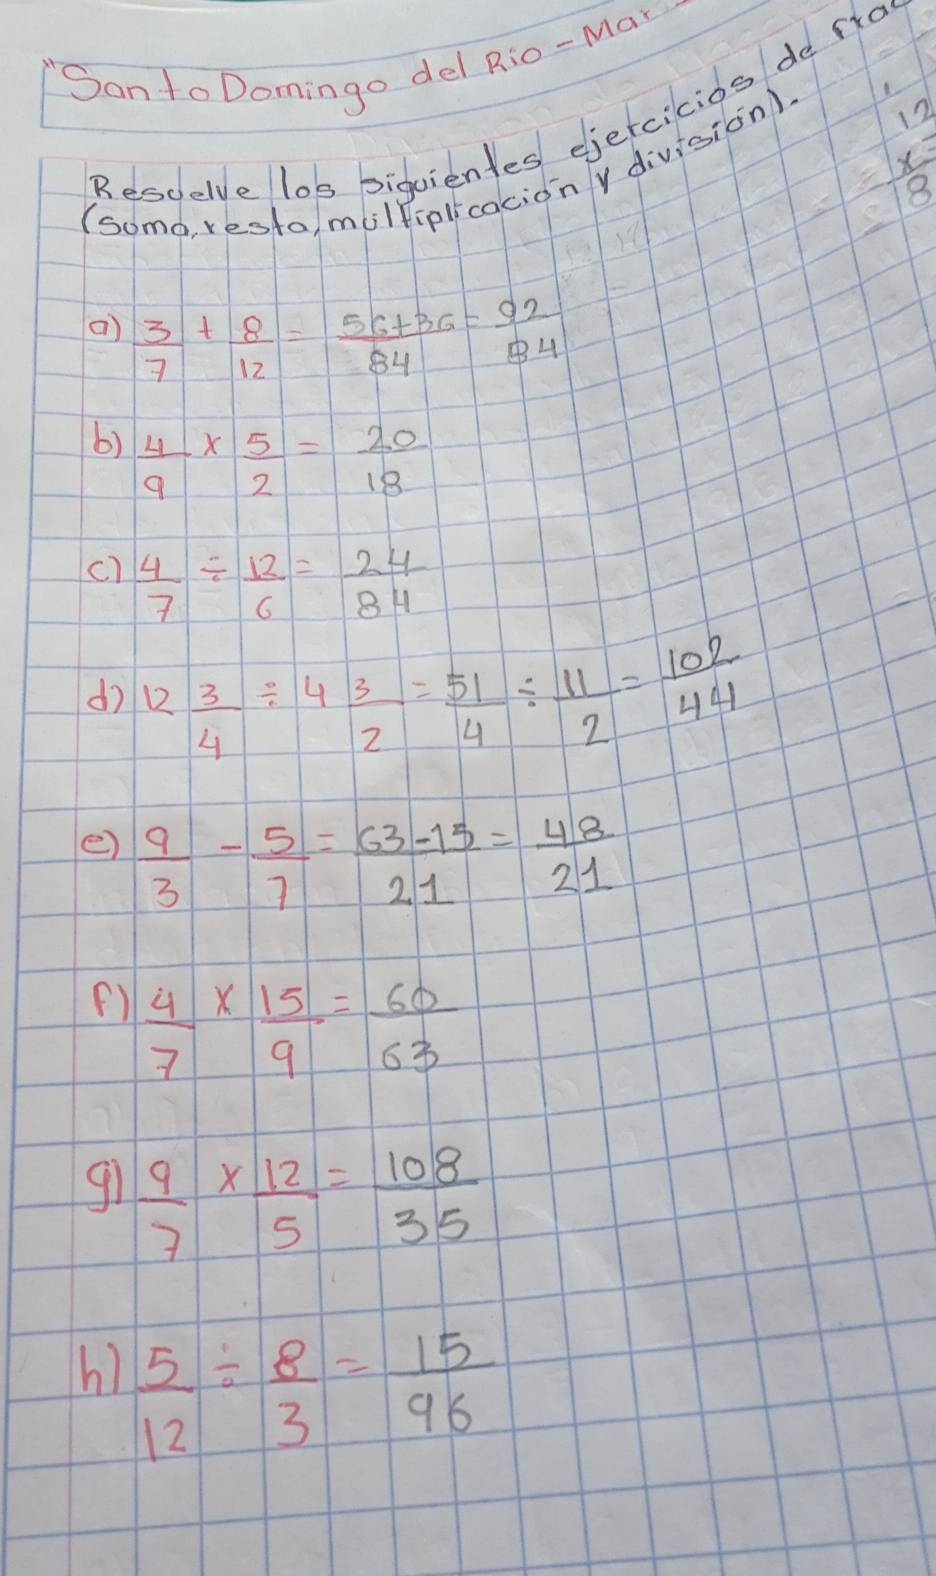 "Santo Domingo del Rio - Mar
Resuelve los siguientes ejercicios de fra
(suma, resta, multiplicación y división).
12
x
8
a) 3/7 + 8/12 = 56+36/84 = 92/84
b) 4/9 x 5/2 = 20/18
c) 4/7 ÷ 12/6 = 24/84
d) 12 3/4 ÷ 4 3/2 = 51/4 ÷ 11/2 = 102/44
e) 9/3 - 5/7 = 63-15/21 = 48/21
f) 4/7 x 15/9 = 60/63
g) 9/7 x 12/5 = 108/35
h) 5/12 ÷ 8/3 = 15/96